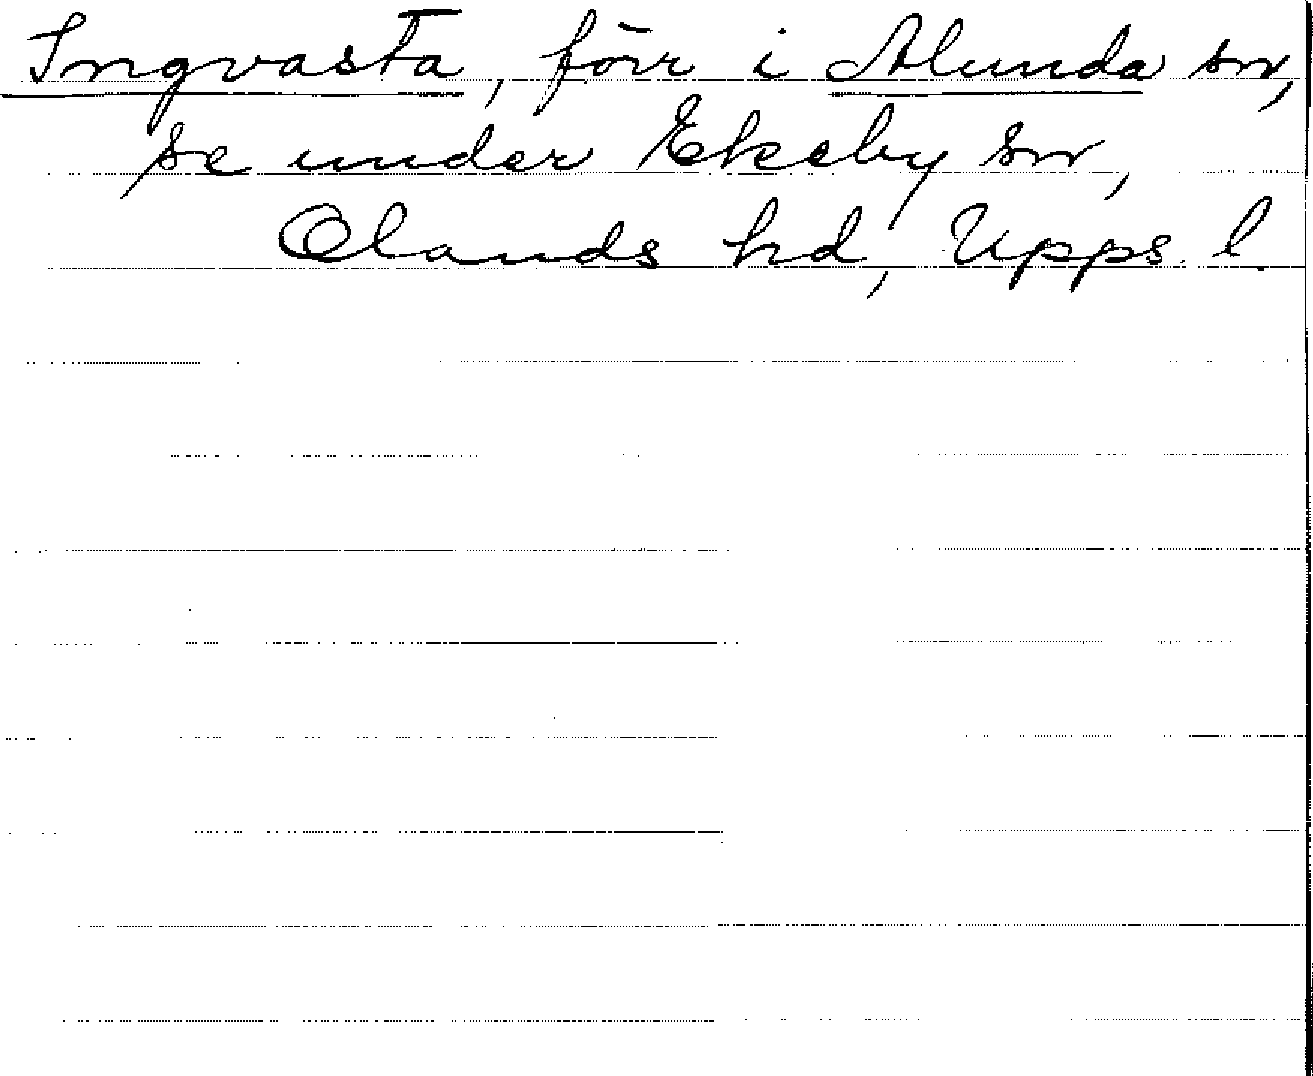 Ingvasta, förr i Alunda sn,
se under Ekeby sn,
Olands hd, Upps. l.